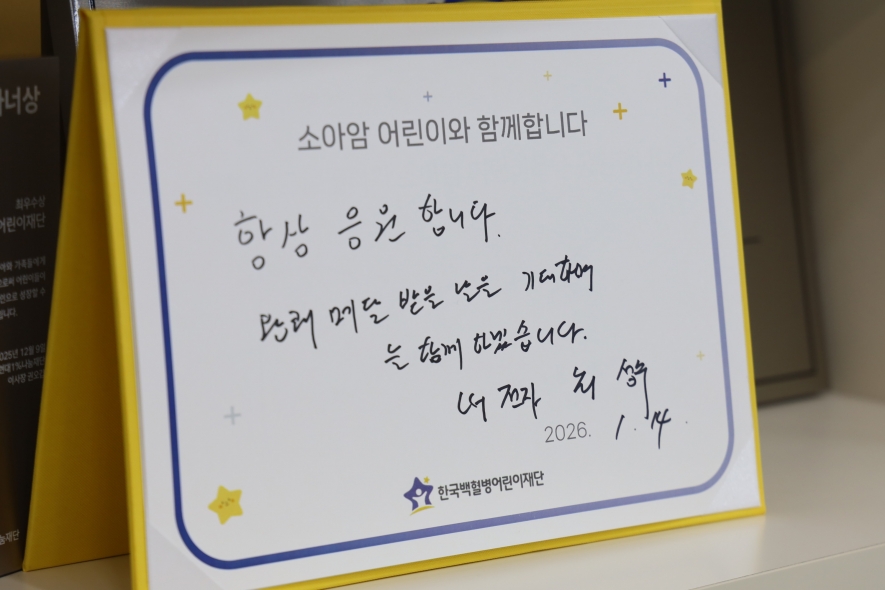 소아암 어린이와 함께합니다
항상 응원 합니다.
완쾌 메달 받을 날을 기대하며
늘 함께 하겠습니다.
전자 최
2026. 1. 14.
한국백혈병어린이재단
너상
최우수상
어린이재단
2025년 12월 9일